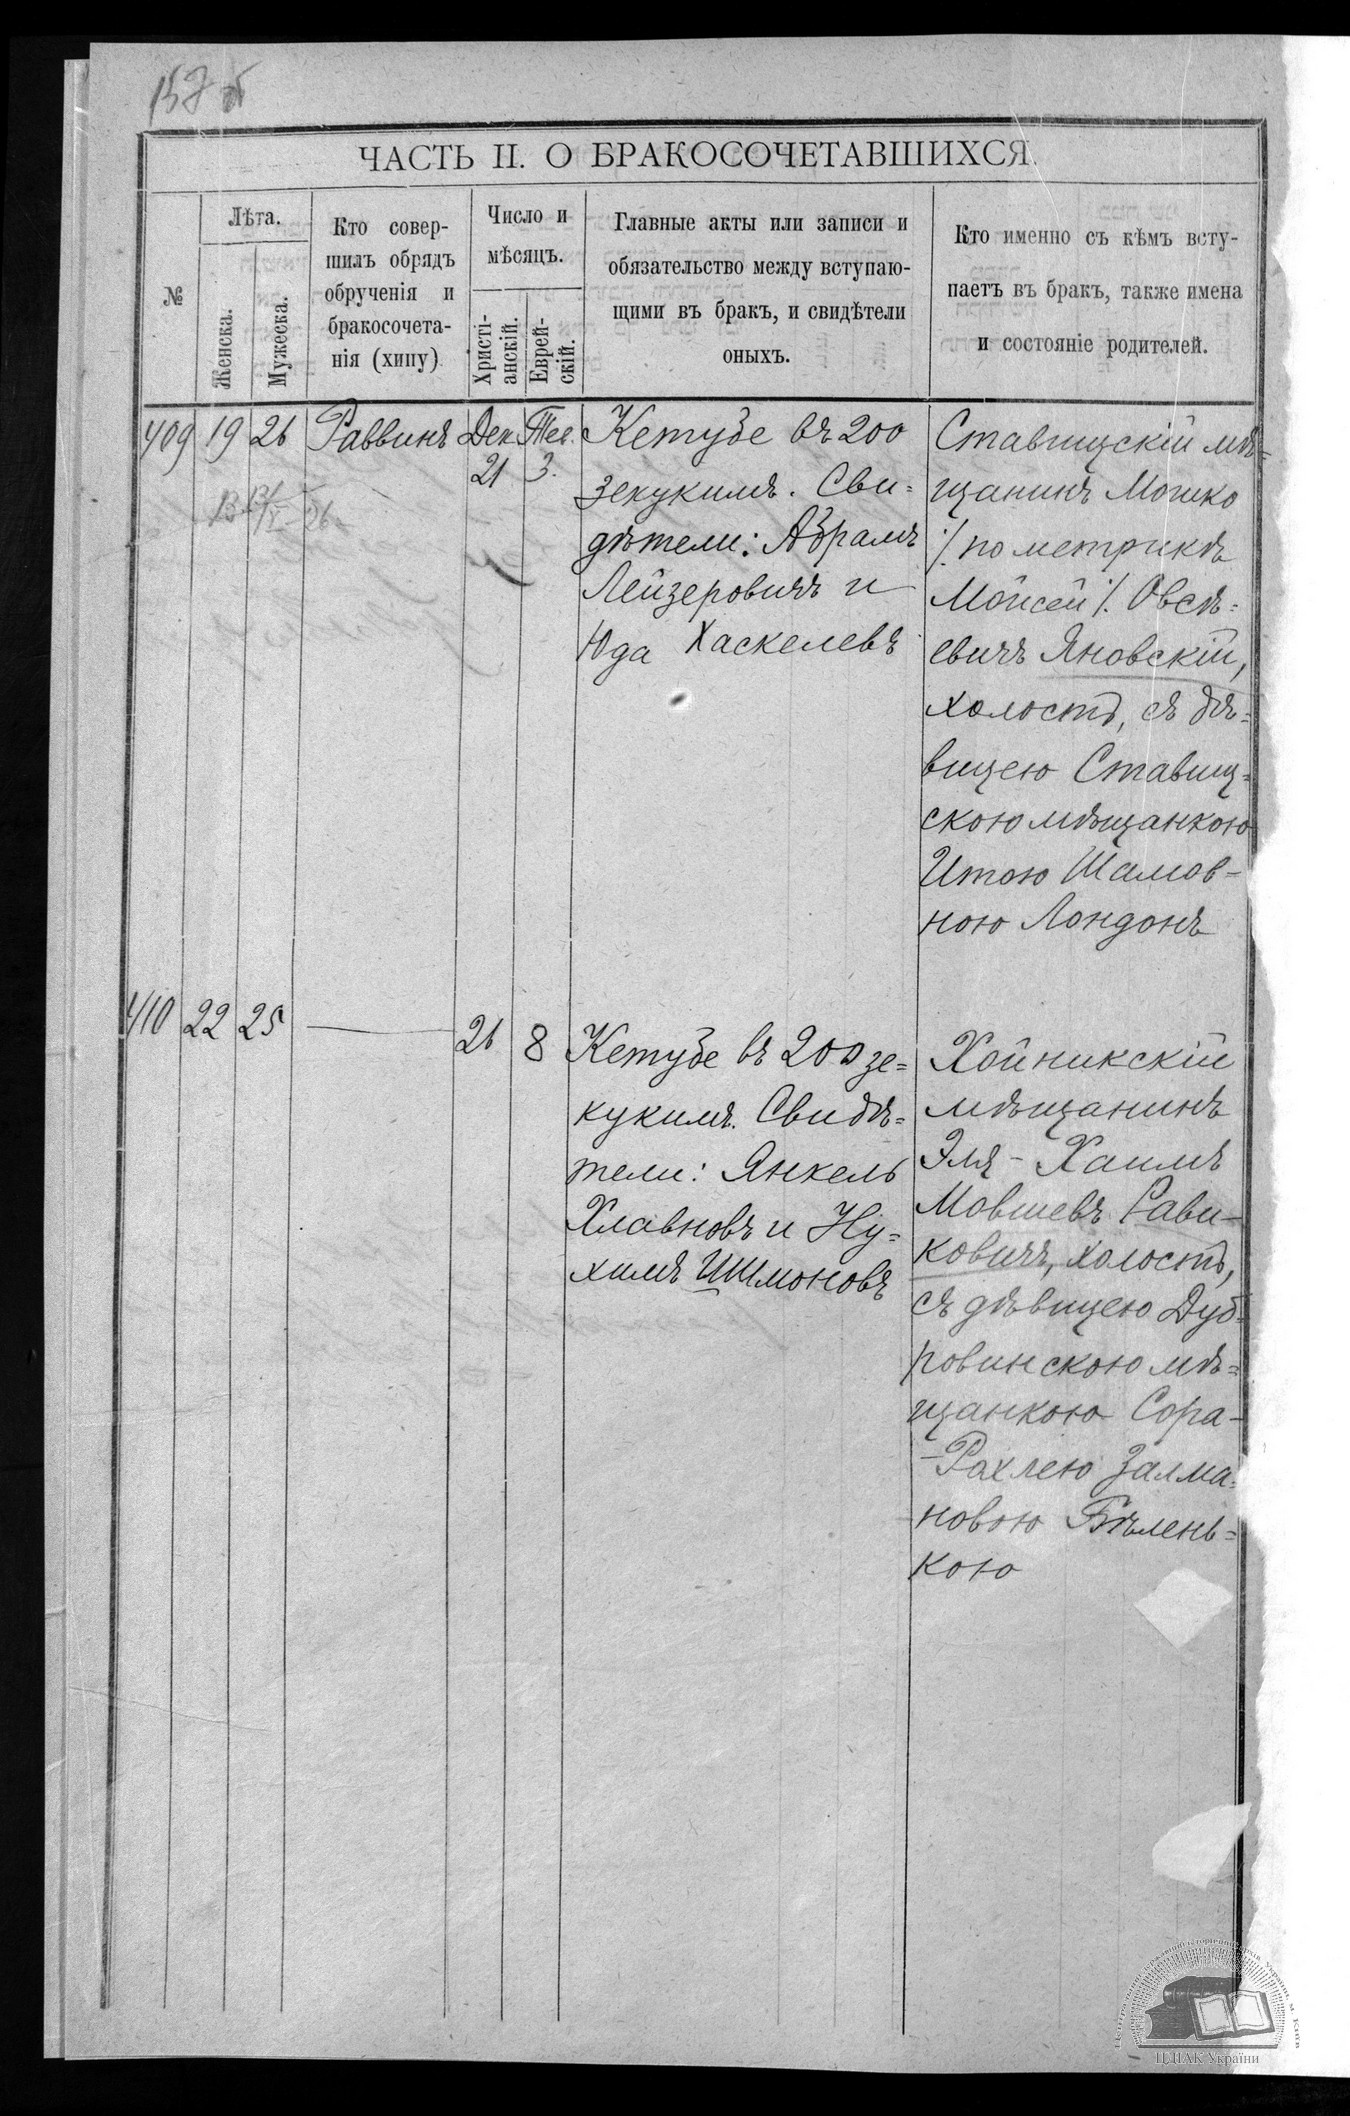 157 б
ЧАСТЬ II. О БРАКОСОЧЕТАВШИХСЯ.
№
Лѣта.
Женска.
Мужеска.
Кто совер-
шилъ обрядъ
обрученія и
бракосочета-
нія (хипу)
Число и
мѣсяцъ.
Христі-
анскій.
Еврей-
скій.
Главные акты или записи и
обязательство между вступаю-
щими въ брак, и свидѣтели
оныхъ.
Кто именно съ кѣмъ всту-
паетъ въ бракъ, также имена
и состояніе родителей.
409 19 26 Раввинъ Дек. Тев.
21 3.
Кетубе въ 200
зекукимъ. Сви=
дѣтели: Абрамъ
Лейзеровичъ и
Юда Хаскелевъ
Ставищскій мѣ=
щанинъ Мошко
/. по метрикѣ
Мойсей /. Овсѣ=
евичъ Яновскій,
холостъ, съ дѣ=
вицею Ставищ=
скою мѣщанкою
Итою Шамов-
ною Лондонъ
410 22 25 — 26 8
Кетубе въ 200 зе=
кукимъ. Свидѣ=
тели: Янкель
Хлавновъ и Ну=
химъ Шимоновъ
Хойникскій
мѣщанинъ
Эля-Хаимъ
Мовшевъ Рави-
ковичъ, холостъ,
съ дѣвицею Дуб=
ровинскою мѣ=
щанкою Сора-
-Рахлею Залма=
новою Бѣлень=
кою
ЦДІАК України